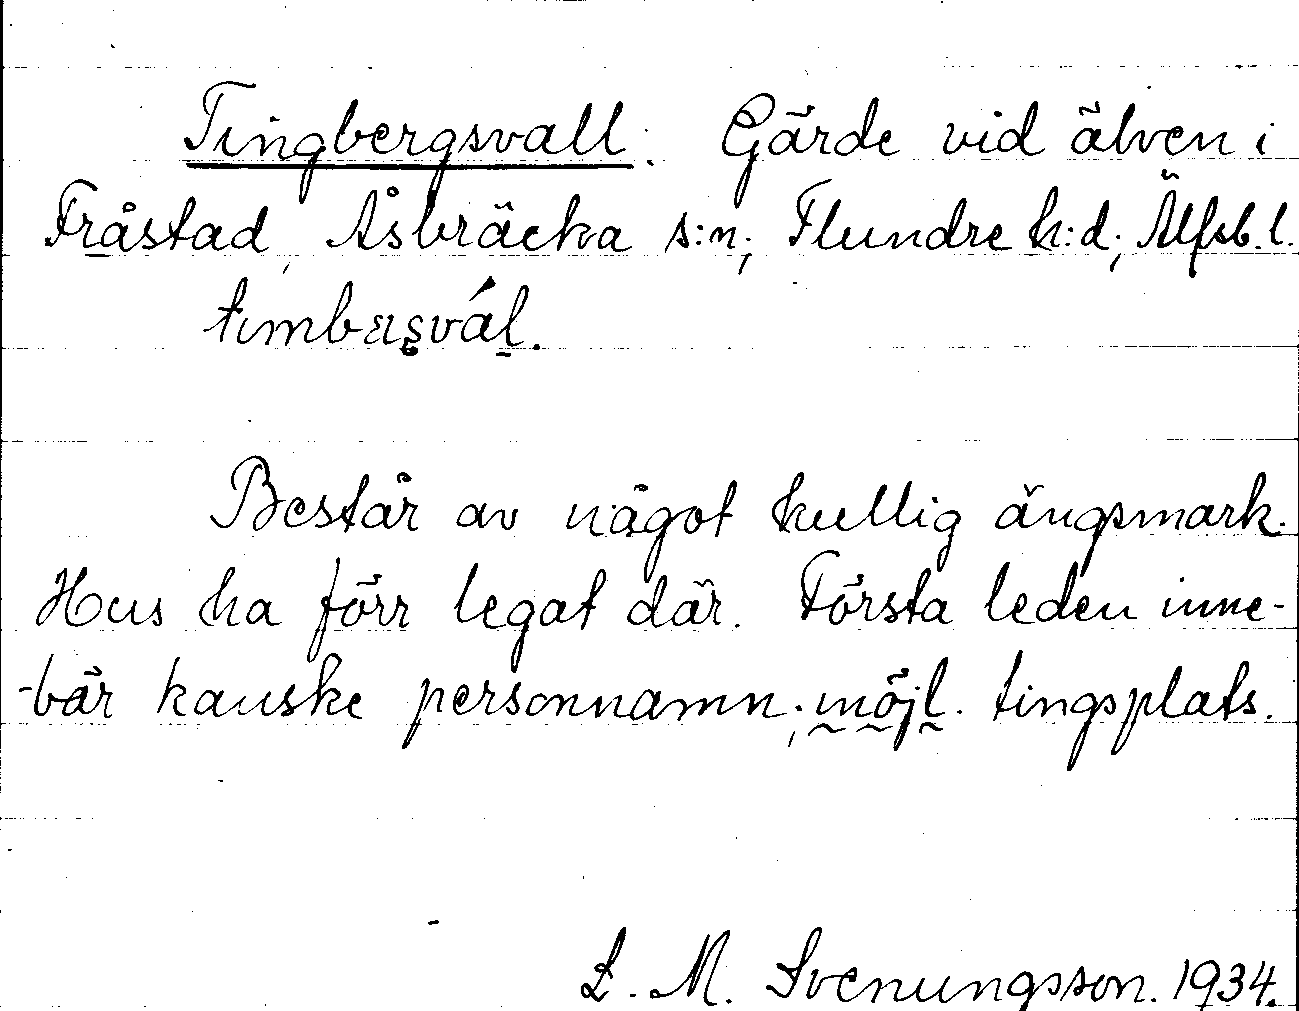 Tingbergsvall. Gärde vid älven i
Fråstad, Åsbräcka s:n; Flundre h:d; Älfsb. l.
timbæsvál.
Består av något kullig ängsmark.
Hus ha förr legat där. Första leden inne-
-bär kanske personnamn; möjl. tingsplats.
L. M. Svenungsson. 1934.